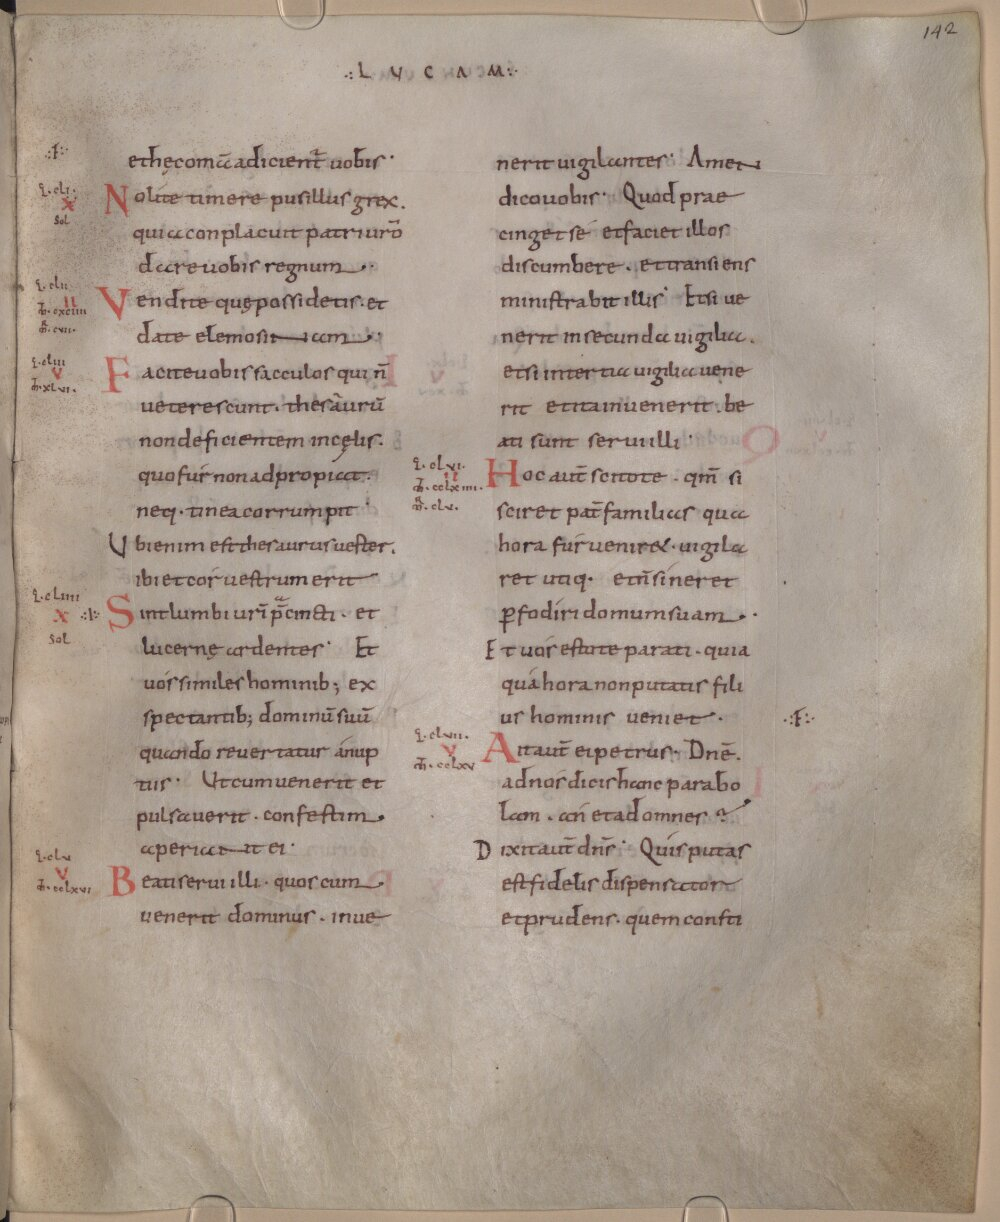 142
.:LVCAM:.
.:F:.
et hęc om̄a adicient̄ uobis·
L·clı·
X
Sol
Nolite timere pusillus grex.
quia conplacuit patri ur̄o
dare uobis regnum.
L·clıı·
II
Vendite quę possidetis· et
date elemosinam·
L·clııı
V
M̄·xlvı·
Facite uobis sacculos qui n̄
ueterescunt· thesaurū
non deficientem in cęlis·
quo fur non adpropiat·
neq· tinea corrumpit
Vbi enim est thesaurus uester·
ibi et cor uestrum erit
L·clıııı
X
Sol
Sint lumbi ur̄i p̄cincti· et
lucernę ardentes· Et
uos similes hominib; ex
spectantib; dominū suū
quando reuertatur a nup
tiis· Ut cum uenerit et
pulsauerit· confestim
aperiant ei·
L·clv
V
M̄·cclxvı
Beati serui illi· quos cum
uenerit dominus· inue
nerit uigilantes· Amen
dico uobis· Quod prae
cinget sé et faciet illos
discumbere· et transiens
ministrabit illis· Et si ue
nerit in secunda uigilia·
et si in tertia uigilia uene
rit et ita inuenerit· be
ati sunt serui illi·
L·clvı·
II
M̄·cclxıııı·
Hoc aut̄ scitote· qm̄ si
sciret pat̄ familias qua
hora fur ueniret· uigila
ret utiq· et n̄ sineret
ꝑfodiri domum suam·
Et uos estote parati· quia
quá hora non putatis fili
us hominis ueniet·
.:F:.
L·clvıı·
V
M̄·cclxv
Ait aut̄ ei petrus· Dn̄e·
ad nos dicis hanc parabo
lam· an et ad omnes?
Dixit aut̄ dn̄s· Quis putas
est fidelis dispensator
et prudens· quem consti